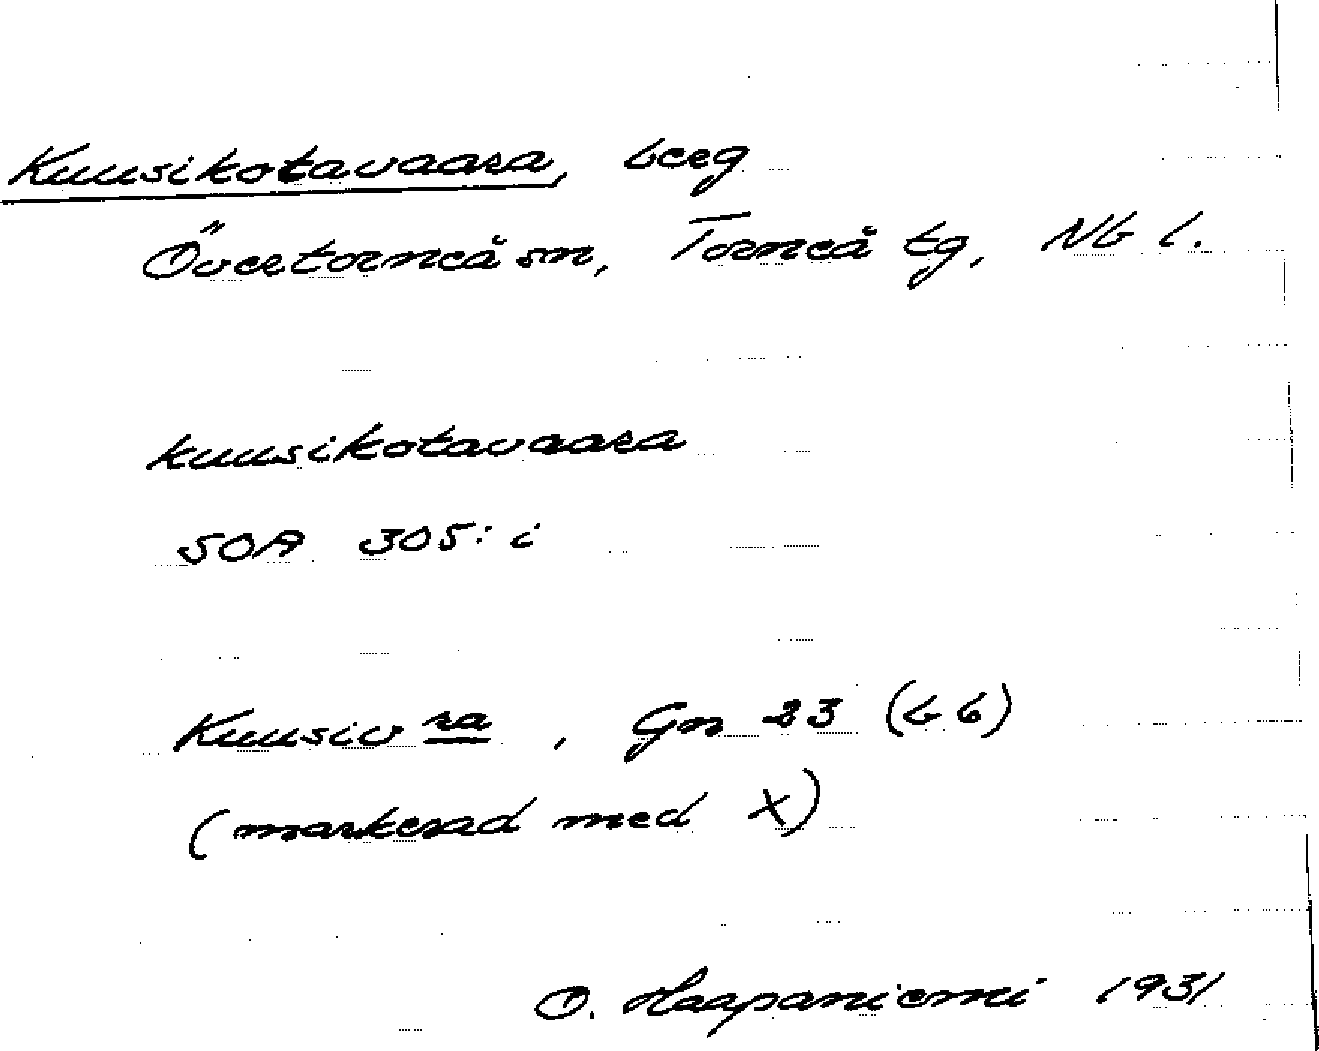 Kuusikotavaara, berg
Övertorneå sn, Torneå tg, Nb l.
kuusikotavaara
SOA 305: i
Kuusivra, Gn 23 (b6)
(markerad med X)
O. Haapaniemi 1931